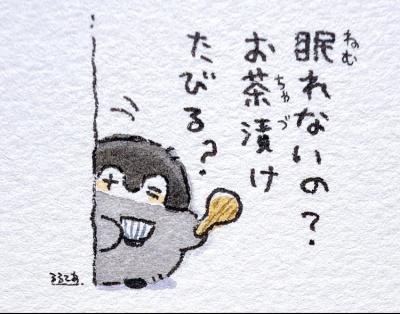 眠れないの?
お茶漬け
たびる?
ねむ
ちゃづ
るるてあ.